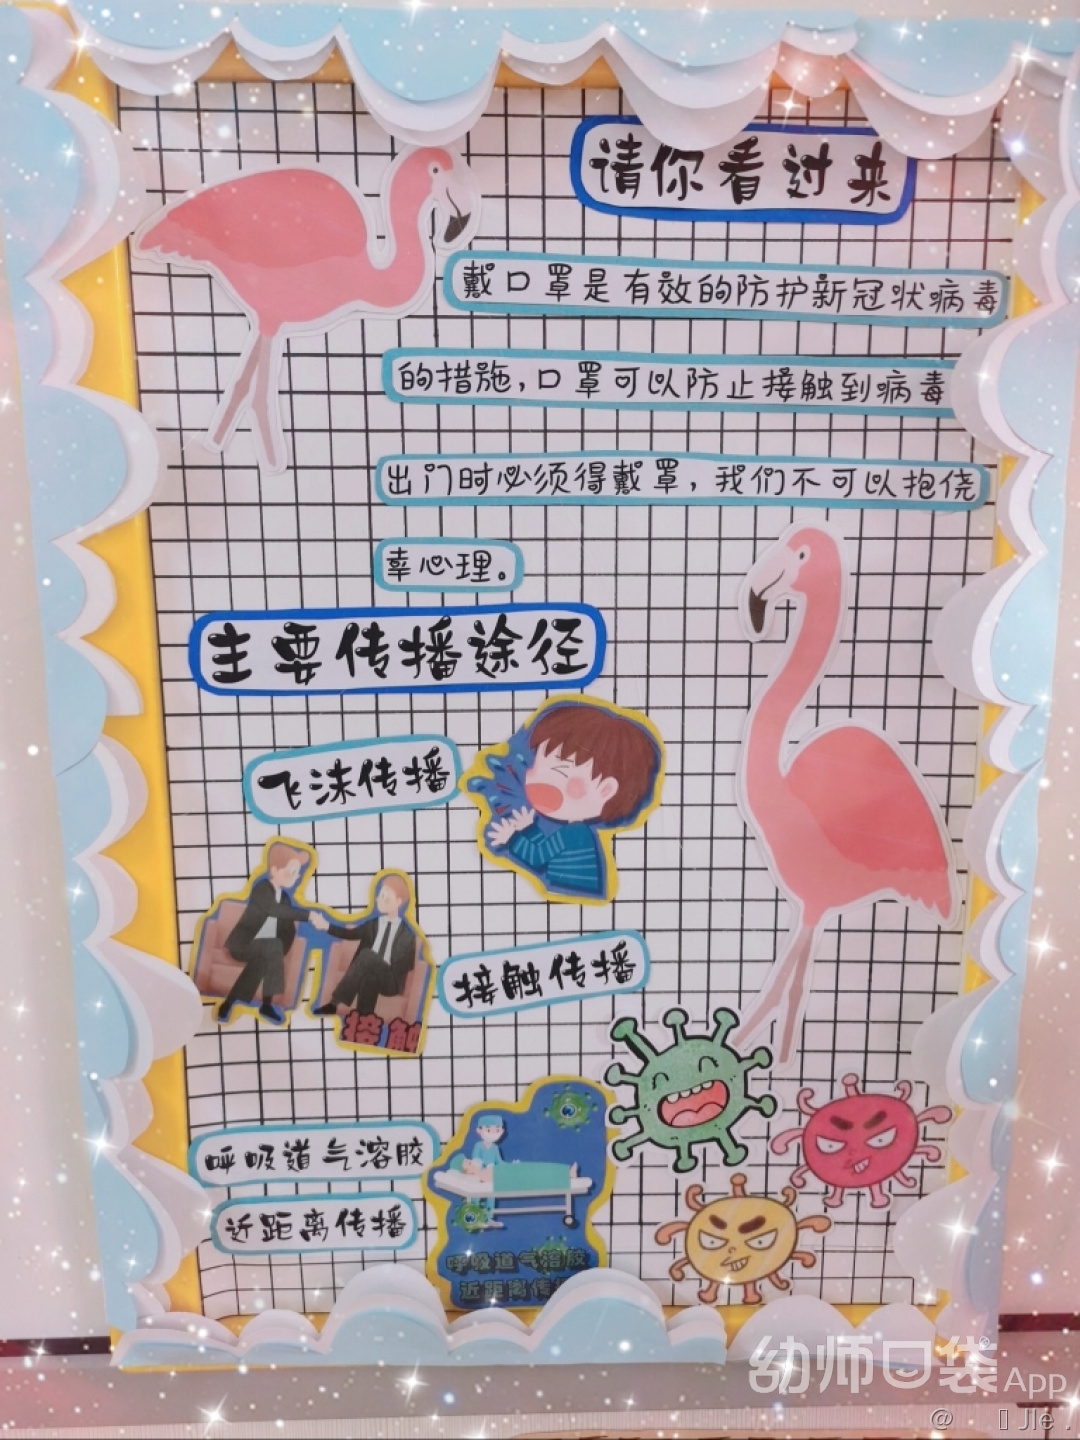 请你看过来
戴口罩是有效的防护新冠状病毒
的措施，口罩可以防止接触到病毒
出门时必须得戴罩，我们不可以抱侥
幸心理。
主要传播途径
飞沫传播
接触传播
接触
呼吸道气溶胶
近距离传播
呼吸道气溶胶
近距离传
幼师口袋App
@ Jle.